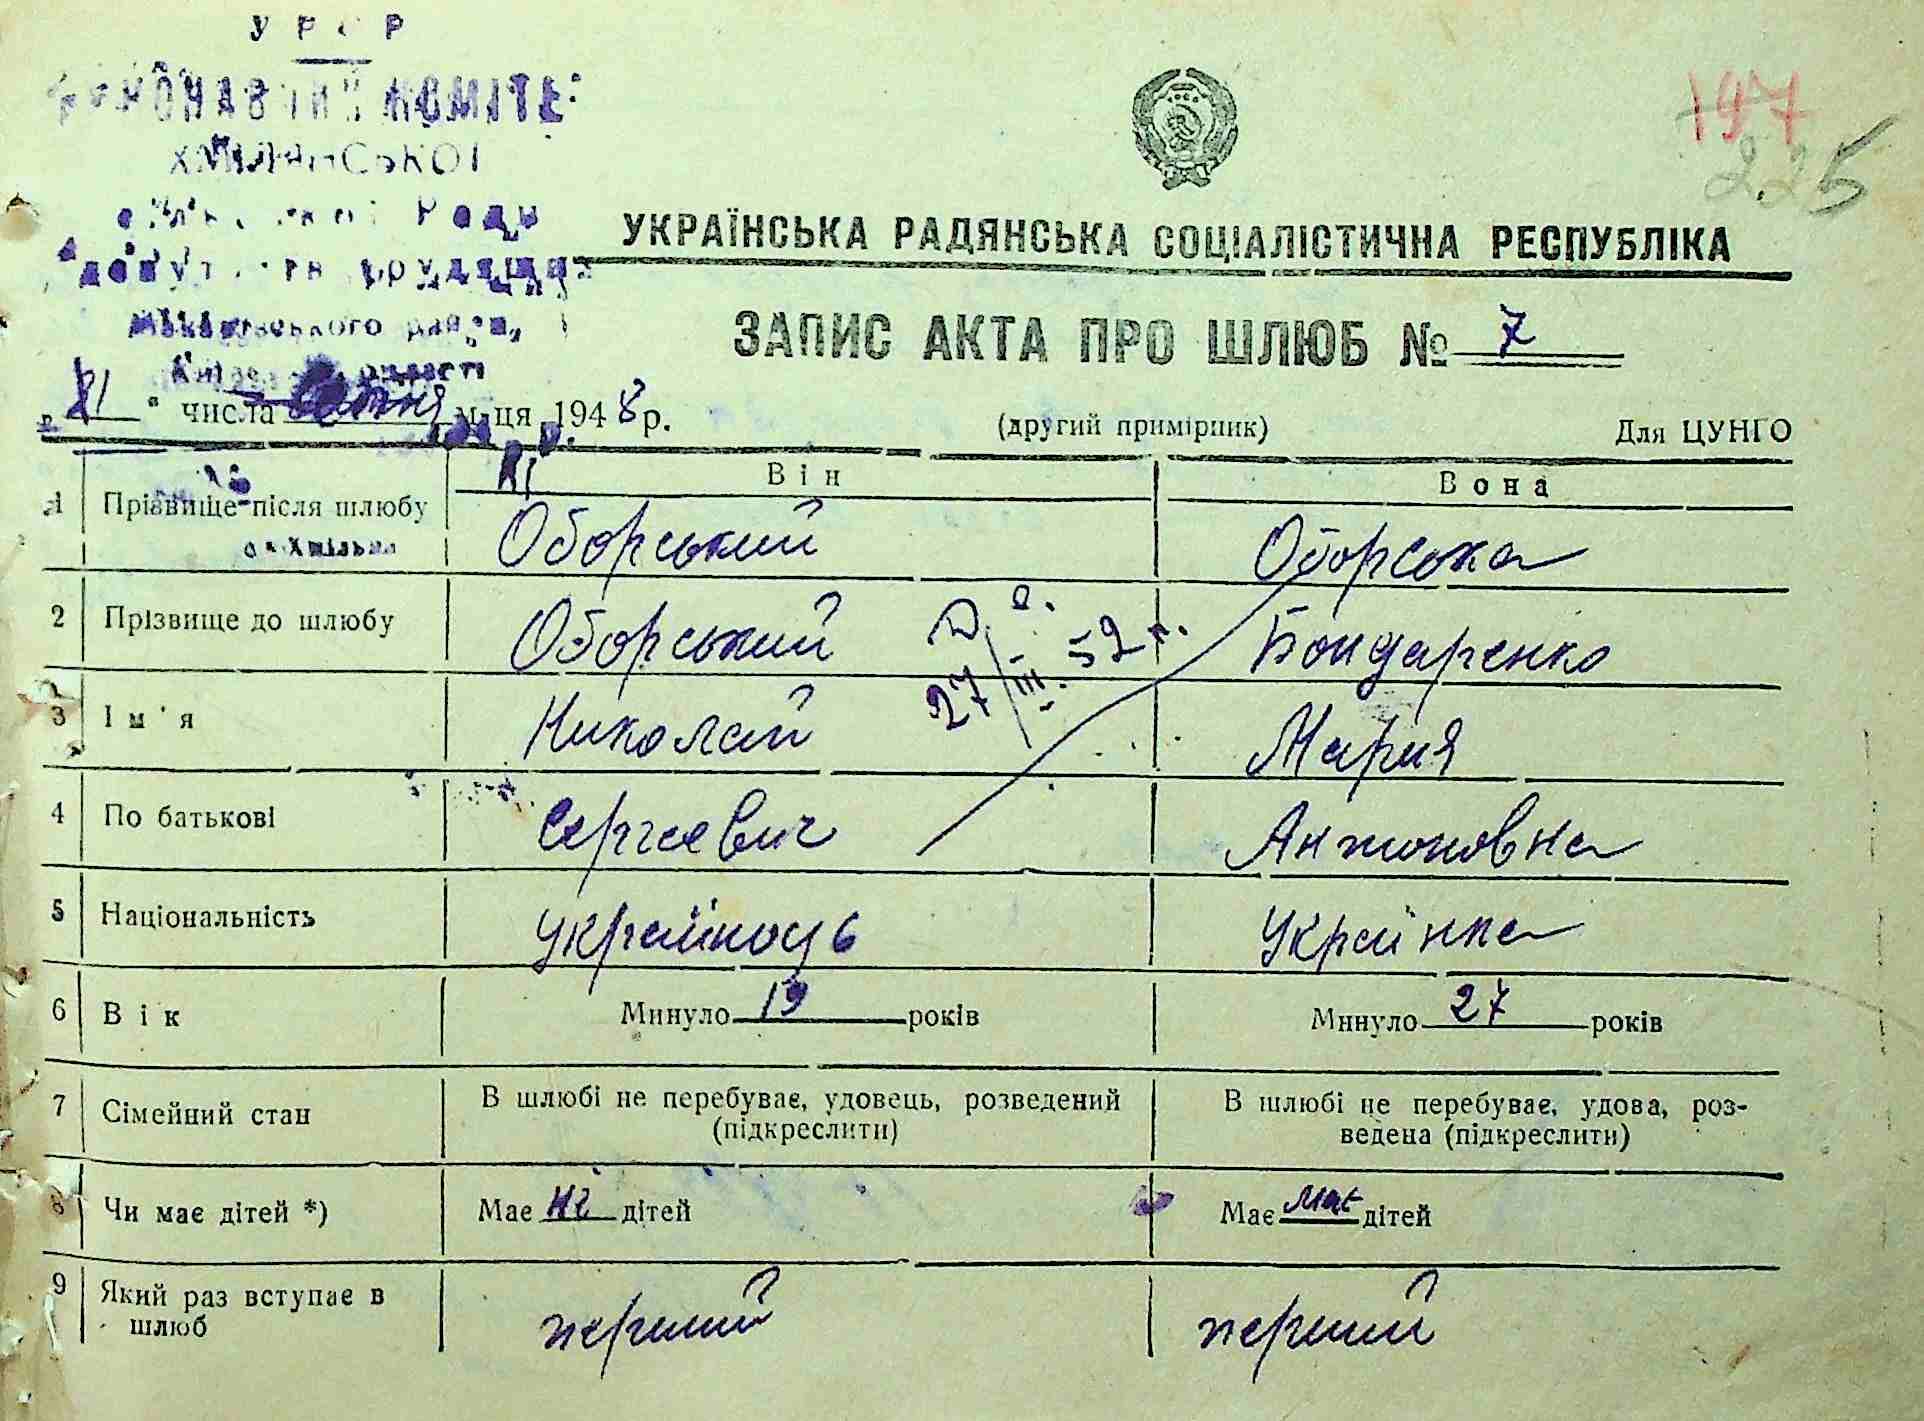 У Р С Р
ВИКОНАВЧИЙ КОМІТЕТ
ХМІЛЯНСЬКОЇ
сільської Ради
депутатів трудящих
Макарівського району,
Київської області
197
225
УКРАЇНСЬКА РАДЯНСЬКА СОЦІАЛІСТИЧНА РЕСПУБЛІКА
ЗАПИС АКТА ПРО ШЛЮБ № 7
числа м-ця 1948 р. (другий примірник) Для ЦУНГО
Він Вона
1 Прізвище після шлюбу Оборський Оборська
с. Хмільна
2 Прізвище до шлюбу Оборський Бондаренко
27/III 52 р.
3 Ім'я Николай Мария
4 По батькові Сергеевич Антоновна
5 Національність українець Українка
6 Вік Минуло 19 років Минуло 27 років
7 Сімейний стан В шлюбі не перебуває, удовець, розведений (підкреслити) В шлюбі не перебуває, удова, роз-
ведена (підкреслити)
8 Чи має дітей *) Має ні дітей Має має дітей
9 Який раз вступає в шлюб перший перший